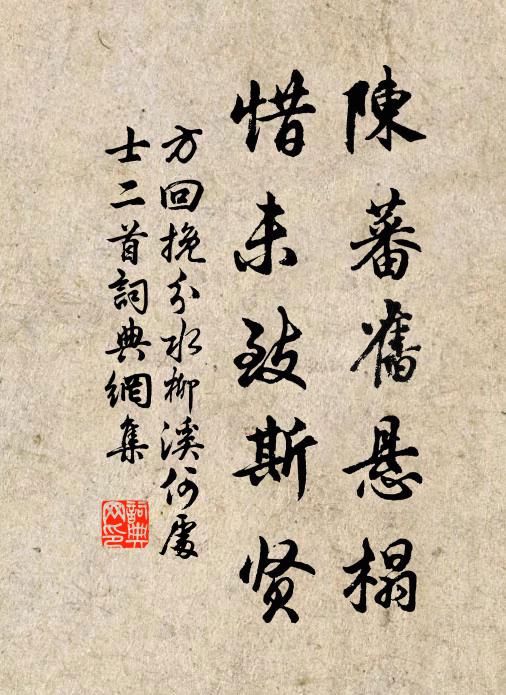 陳蕃舊悬榻
惜未致斯贤
方回挽分水柳溪何處
士二首詞典網集
詞典网印